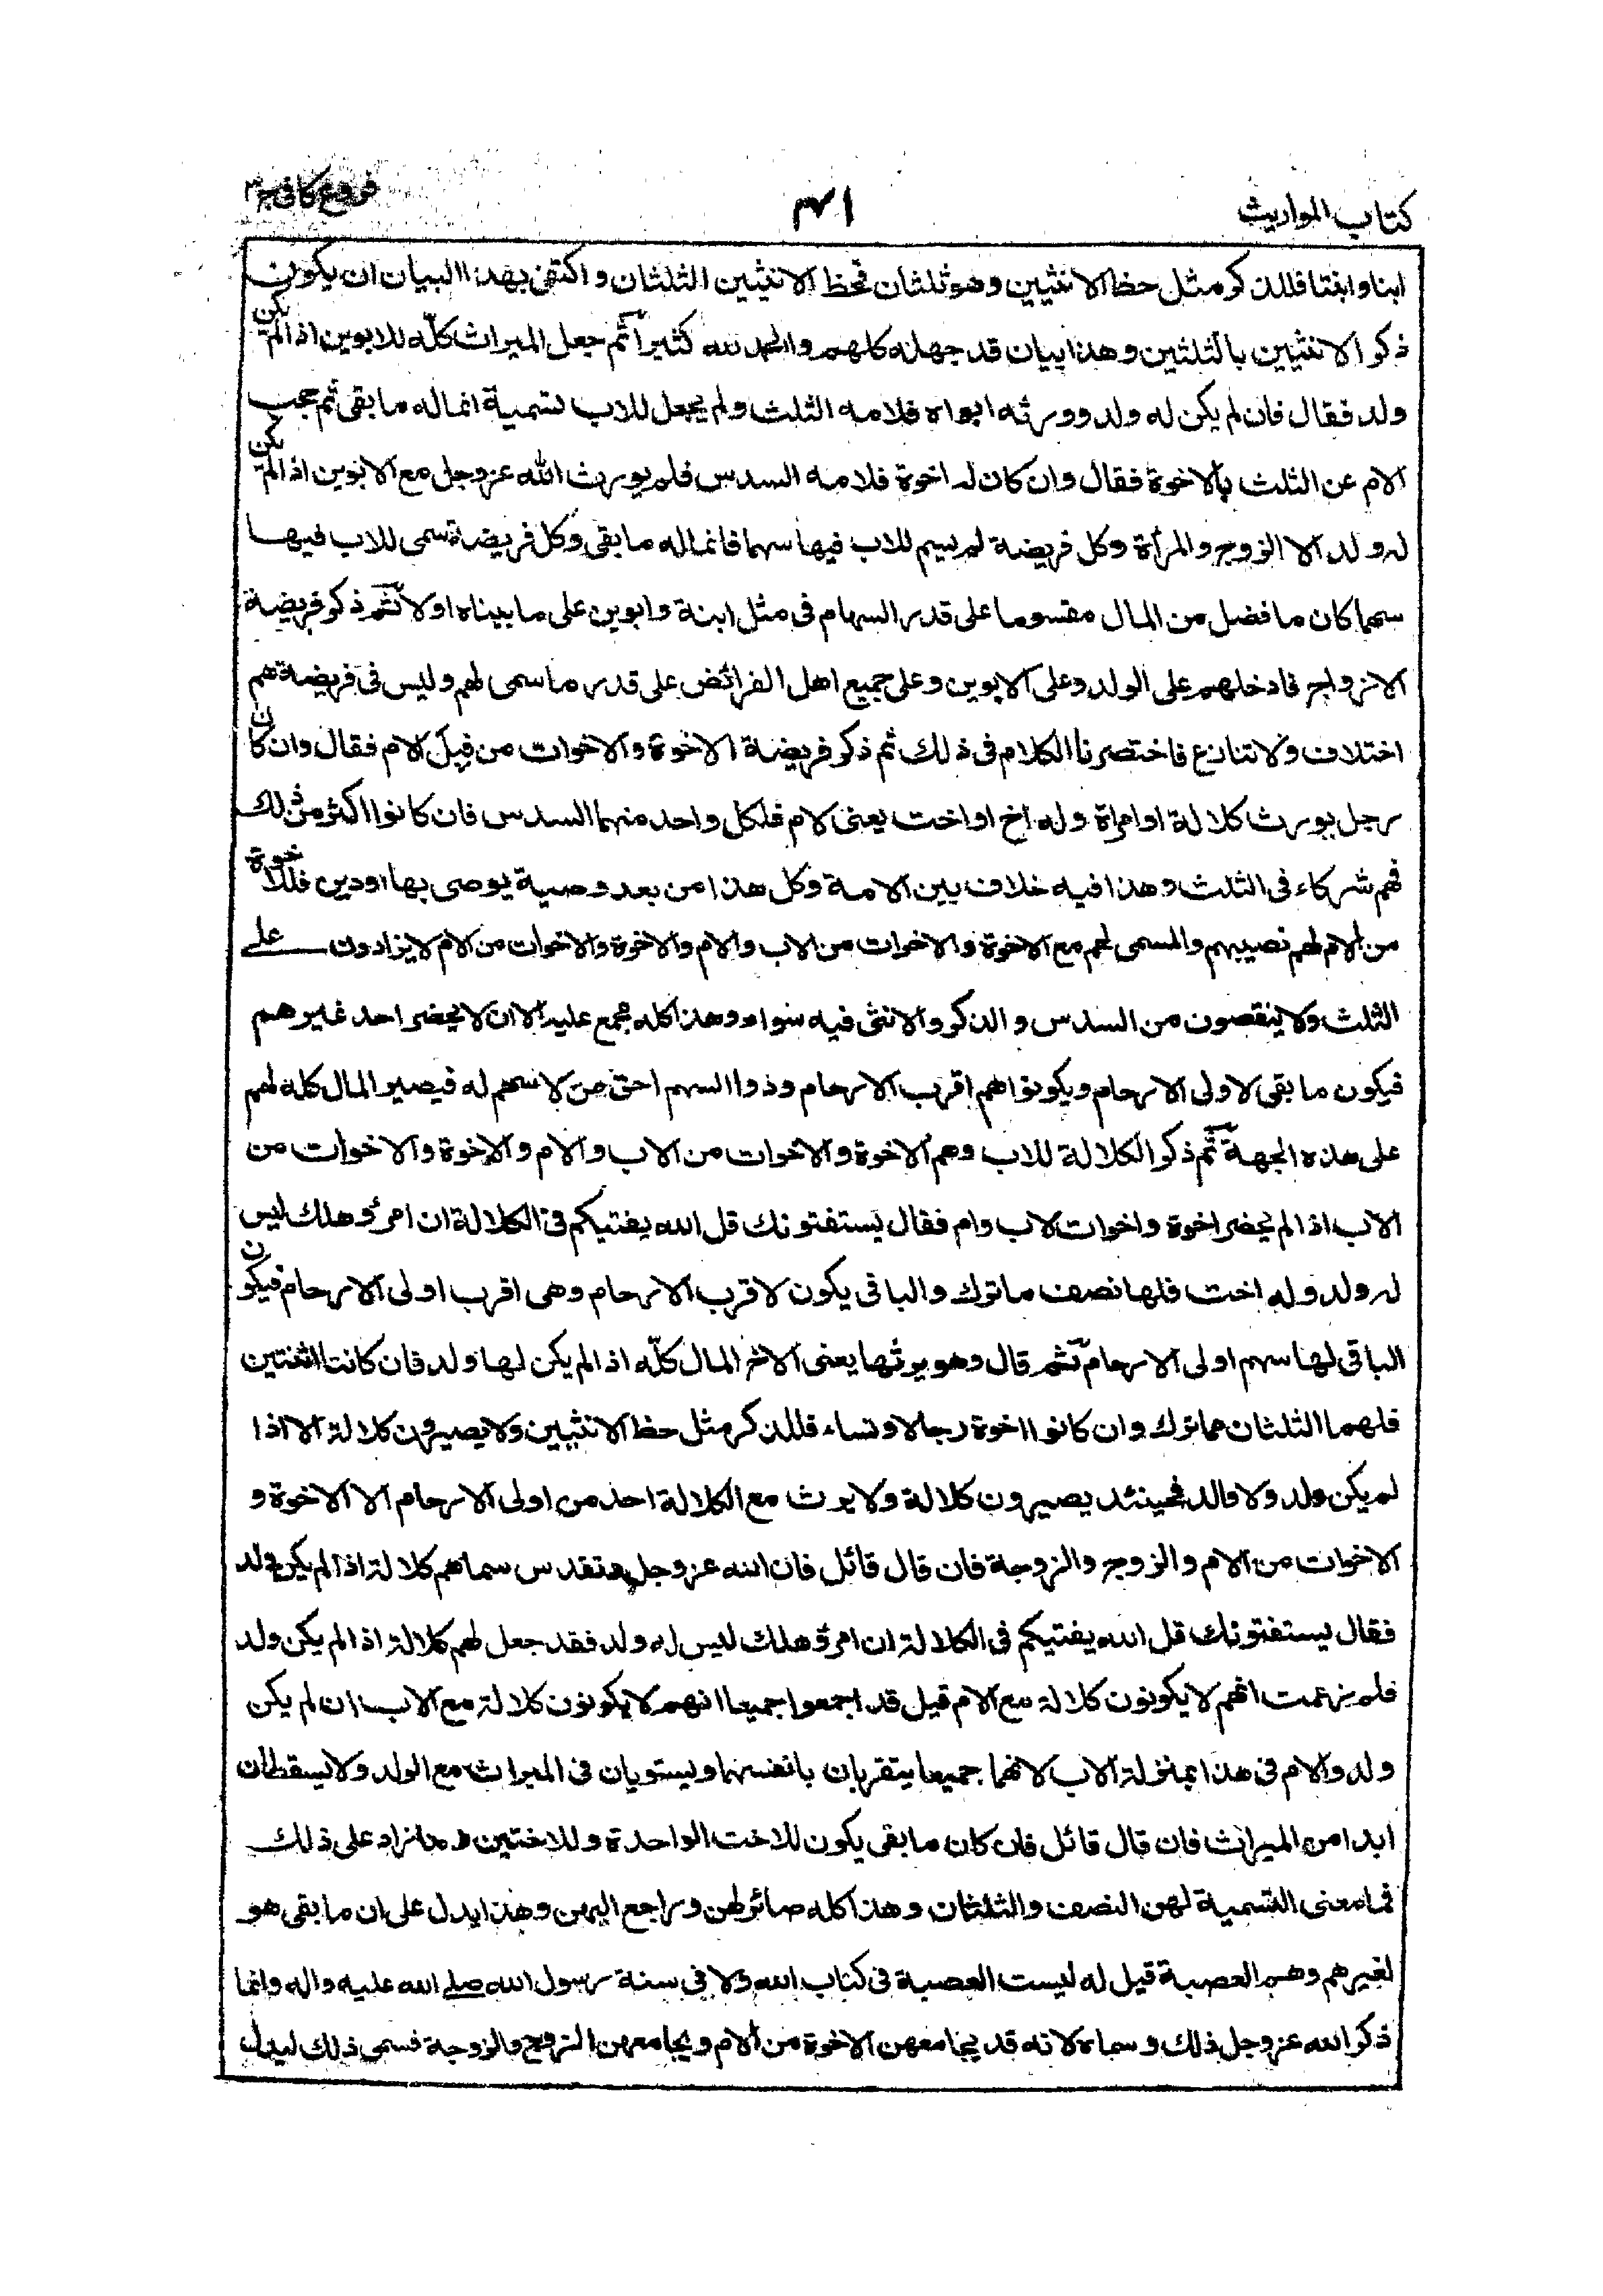 كتاب المواريث
٤١
فروع كافى ج ٣
ابنا وابنتا فللذكر مثل حظ الانثيين وهو ثلثان فحظ الانثيين الثلثان واكتفى بهذا البيان ان يكون
ذكر الانثيين بالثلثين وهذا بيان قد جهله كلهم والحمد لله كثيرا ثم جعل الميراث كلّه للابوين اذا لم يكن
ولد فقال فان لم يكن له ولد وورثه ابواه فلامه الثلث ولم يجعل للاب تسمية انما له ما بقى ثم حجب
الام عن الثلث بالاخوة فقال وان كان له اخوة فلامه السدس فلم يورث الله عز وجل مع الابوين اذا لم يكن
له ولد الا الزوج والمرأة وكل فريضة لم يسم للاب فيها سهما فانما له ما بقى وكل فريضة سمى للاب فيها
سهما كان ما فضل من المال مقسوما على قدر السهام فى مثل ابنة وابوين على ما بيناه اولا ثم ذكر فريضة
الازواج فادخلهم على الولد وعلى الابوين وعلى جميع اهل الفرائض على قدر ما سمى لهم وليس فى فريضة هم
اختلاف ولا تنازع فاختصرنا الكلام فى ذلك ثم ذكر فريضة الاخوة والاخوات من قبل الام فقال وان كان
رجل يورث كلالة او امراة وله اخ او اخت يعنى لام فلكل واحد منهما السدس فان كانوا اكثر من ذلك
فهم شركاء فى الثلث وهذا فيه خلاف بين الامة وكل هذا من بعد وصية يوصى بها او دين فللاخوة
من الام لهم نصيبهم والمسمى لهم مع الاخوة والاخوات من الاب والام والاخوة والاخوات من الام لا يزادون على
الثلث ولا ينقصون من السدس والذكر والانثى فيه سواء وهذا كله مجمع عليه الا ان لا يحضر احد غيرهم
فيكون ما بقى لاولى الارحام ويكونوا هم اقرب الارحام وذوا السهم احق من لا سهم له فيصير المال كله لهم
على هذه الجهة ثم ذكر الكلالة للاب وهم الاخوة والاخوات من الاب والام والاخوة والاخوات من
الاب اذا لم يحضر اخوة واخوات لاب وام فقال يستفتونك قل الله يفتيكم فى الكلالة ان امرؤ هلك ليس
له ولد وله اخت فلها نصف ما ترك والباقى يكون لاقرب الارحام وهى اقرب اولى الارحام فيكون
الباقى لها سهم اولى الارحام ثم قال وهو يرثها يعنى الاخ المال كلّه اذا لم يكن لها ولد فان كانت اثنتين
فلهما الثلثان مما ترك وان كانوا اخوة رجالا ونساء فللذكر مثل حظ الانثيين ولا يصيرون كلالة الا اذا
لم يكن ولد ولا والد فحينئذ يصيرون كلالة ولا يرث مع الكلالة احد من اولى الارحام الا الاخوة و
الاخوات من الام والزوج والزوجة فان قال قائل فان الله عز وجل وتقدس سماهم كلالة اذا لم يكن ولد
فقال يستفتونك قل الله يفتيكم فى الكلالة ان امرؤ هلك ليس له ولد فقد جعل لهم كلالة اذا لم يكن ولد
فلم زعمت انهم لا يكونون كلالة مع الام قيل قد اجمعوا جميعا انهم لا يكونون كلالة مع الاب ان لم يكن
ولد والام فى هذا بمنزلة الاب لانهما جميعا يتقربان بانفسهما ويستويان فى الميراث مع الولد ولا يسقطان
ابدا من الميراث فان قال قائل فان كان ما بقى يكون للاخت الواحدة وللاختين وما زاد على ذلك
فما معنى التسمية لهن النصف والثلثان وهذا كله صائر لهن وراجع اليهن وهذا يدل على ان ما بقى هو
لغيرهم وهم العصبة قيل له ليست العصبة فى كتاب الله ولا فى سنة رسول الله صلى الله عليه واله وانما
ذكر الله عز وجل ذلك وسماه لانه قد يجامعهن الاخوة من الام ويجامعهن الزوج والزوجة فسمى ذلك ليدل